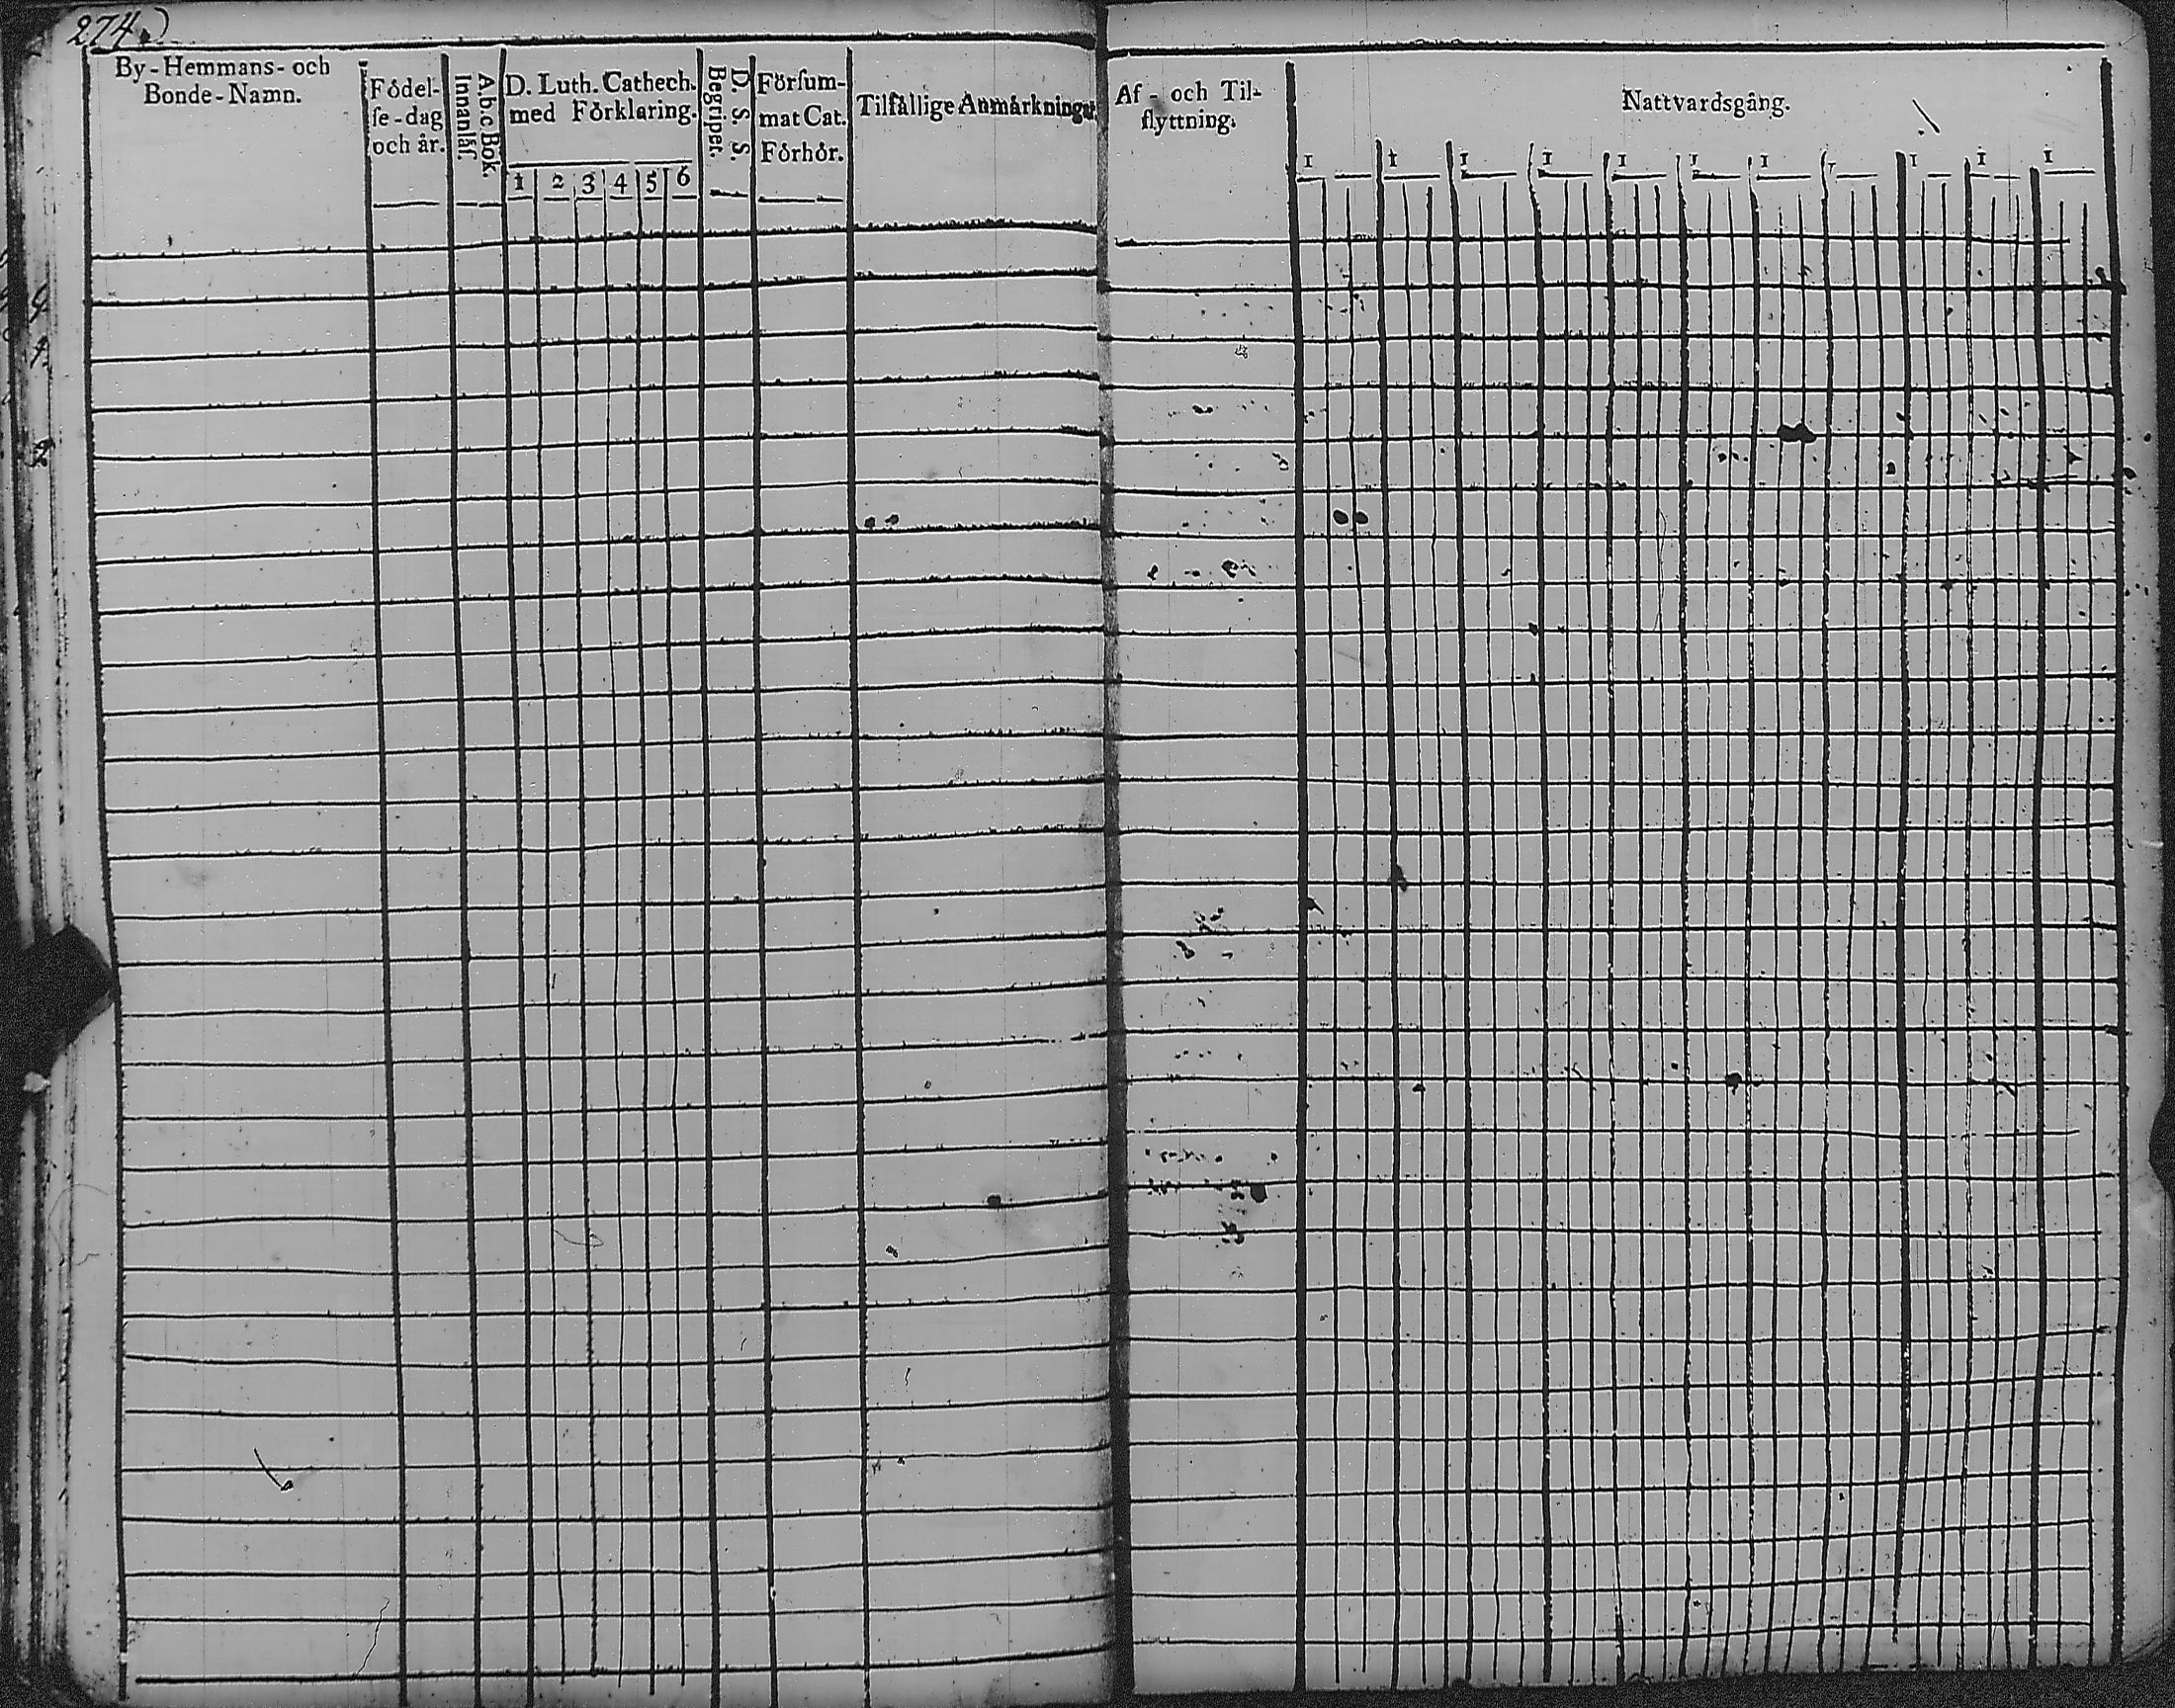 274.)
By-Hemmans- och
Bonde-Namn.
Födel-
ſe-dag
och år.
Abc Bok.
Innanläſ.
D. Luth. Cathech.
med Förklaring.
1 2 3 4 5 6
D. S. S.
Begriper.
Förſum-
mat Cat.
Förhör.
Tilfällige Anmärkningar
Af- och Til-
flyttning.
Nattvardsgång.
1 1 1 1 1 1 1 1 1 1 1